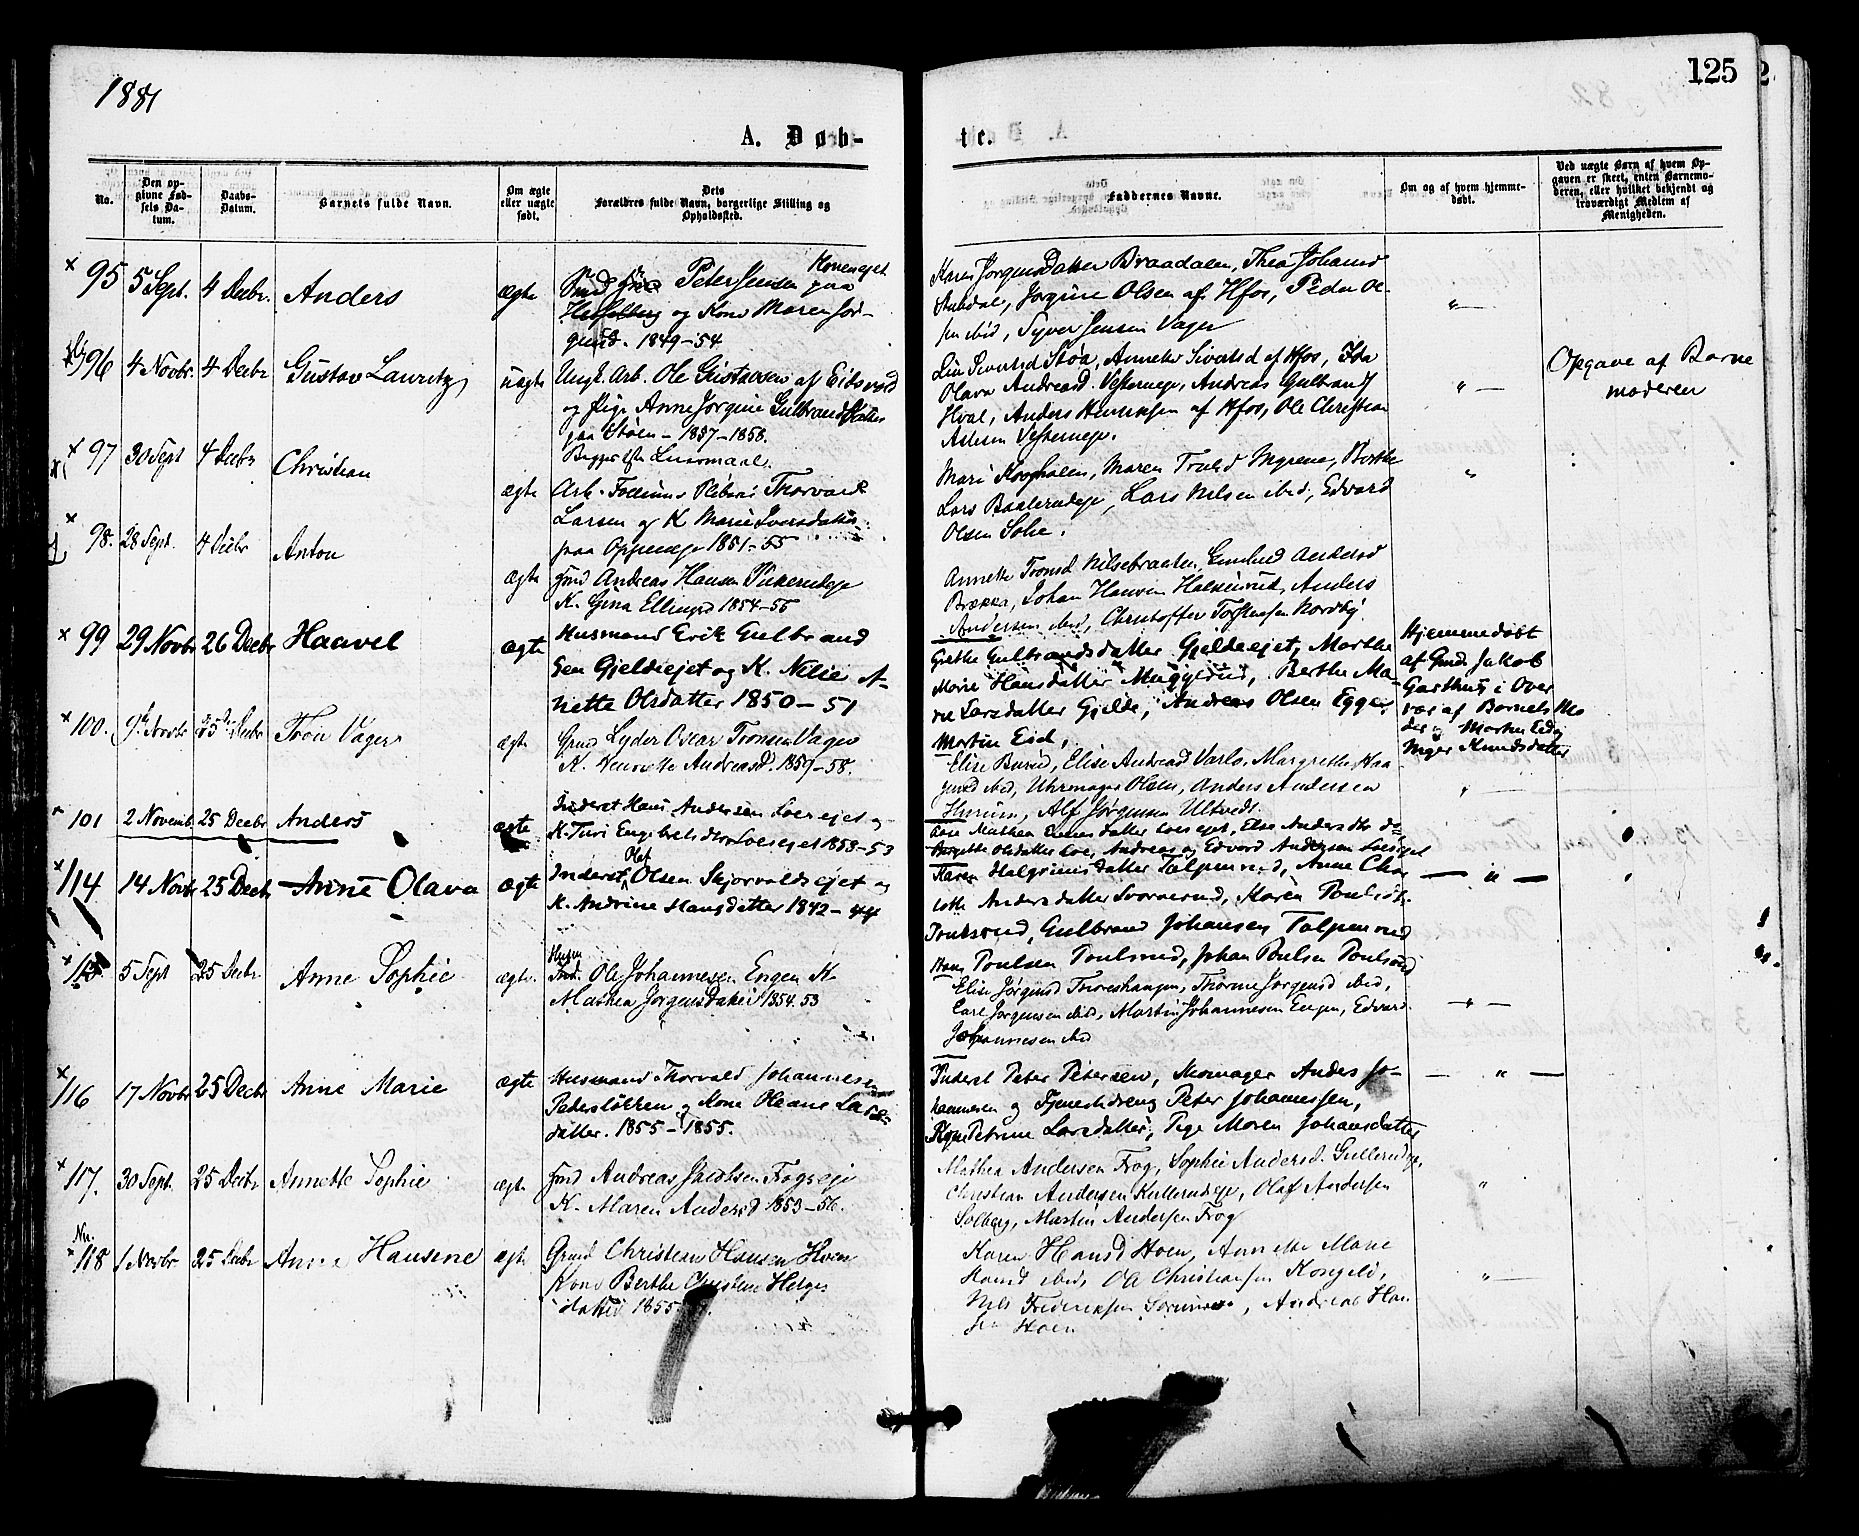 1881
125
A. Døb-
te.
No.
Den op-
givne Fød-
sels Da-
tum.
Daabs-
Datum.
Barnets fulde Navn.
Om ægte
eller uægte
født.
Dets
Forældres fulde Navn, borgerlige Stilling og
Opholdssted.
Faddernes Navne.
Om og af hvem hjemme-
døbt.
Ved uægte Børn af hvem Op-
gaven er skeet, enten Barnemo-
deren, eller hvilket bekjendt og
troværdigt Medlem af
Menigheden.
95 5 Sept. 4 Decbr. Anders ægte
Peter Jensen paa
Hesselberg og Kone Maren Jør-
gensd. 1849-54
Karen Jørgensdatter Braadalen, Thea Johansd
Jørgine Olsen af Hfos, Peder Ol-
sen ibid, Syver Jensen Vager
96 4 Novbr. 4 Decbr Gustav Lauritz uægte
Ungk. Arb. Ole Gustavsen af Eidsvold
og Pige Anne Jørgine Gulbrandsdatter
paa Støen - 1857-1858.
Begges 1ste Leiermaal.
Lin Sivertsd Støa, Annette Sivertsd af Hfos, Ida
Olava Andreasd. Vesterneje, Andreas Gulbrands
Hval, Anders Henriksen af Hfos, Ole Christian
Opgave af Barne
moderen
97 30 Sept 4 Decbr Christian ægte
Arb. Thorvald
Larsen og K Marie Iversdatter
paa Oppeneje 1851-55
Mari Maren Trulsd Myrene, Berthe
Lars Lars Nilsen ibid, Edvard
Olsen
98. 28 Sept. 4 Decbr Anton ægte
Andreas Hansen
K. Gina Ellingsd 1854-56
Annette Tronsd Nilsebraaten, Gunhild Andersd
Brækka, Johan Hansen Anders
Andersen ibid, Christoffer Torstensen Nordby
99 29 Novbr 26 Decbr Haavel ægte
Husmand Erik Gulbrand
sen Gjeldeejet og K. Nilie A-
nette Olsdatter 1850-51
Grethe Gulbrandsdatter Gjeldeejet, Marthe
Marie Hansdatter Berthe Ma-
rie Larsdatter Gjelde, Andreas Olsen Egge,
Martin Eid,
Hjemmedøbt
af Gmd. Jakob
Garthus i Over
vær af Barnets Mo
der og
Inger Knudsdatter
100. 9de Novbr 25de Decbr Tron Vager ægte
Grmd Lyder Oscar Tronsen Vager
K. Henriette Andreasd. 1857-58.
Elise Burud, Elise Andreasd Varlo, Margrethe Haa-
gensd ibid, Uhrmager Olsen, Anders Andersen
Hurum, Alf Jørgensen Ultvedt.
101 2 Novemb. 25 Decbr Anders ægte
Inderst Hans Andersen Loesejet og
K. Turi Engebretsdtr Loesejet 1853-53
Else Andersdtr do
Olsdatter Loe, Andreas og Edvard Andersen Loesejet
114 14 Novbr 25 Decbr Anne Olava ægte
Inderst Olaf Olsen Skjorvoldsejet og
K. Andrine Hansdatter 1842-44
Karen Halgrimsdatter Tolpenrud, Anne Char
lotte Andersdatter Svornerud, Karen Poulsdt.
Poulsrud, Gulbrand Johansen Tolpenrud
Hans Poulsen Poulsrud, Johan Poulsen Poulsrud
5 Sept 25 Decbr Anne Sophie ægte.
Ole Johannesen Engen K.
Mathea Jørgensdatter 1854.53
Elise Jørgensd Thorine Jørgensd ibid,
Carl Jørgensen ibid, Martin Johannesen Engen, Edvard
Johannesen ibid
116 17 Novbr 25 Decbr Anne Marie ægte
Husmand Thorvald Johannesen
Pedersløkken og Kone Oleane Lars-
datter. 1855-1855.
Inderst Peter Petersen, Skomager Anders Jo-
hannesen og Tjenestedreng Peter Johannessen,
Kone Petrine Larsdatter, Pige Maren Johansdatter
117. 30 Sept. 25 Decbr Annette Sophie ægte
Andreas Jacobsen Frogseje
K. Maren Andersd 1853-56.
Mathea Andersen Frog, Sophie Andersd. Gullerudeje,
Christian Andersen Kullerudeje, Olaf Andersen
Solberg, Martin Andersen Frog
118 1 Novbr 25 Decbr Anne Hansene ægte
Grmd Christian Hansen Hoen
Kone Berthe Christine Helges
datter 1855
Karen Hansd Hoen, Annette Marie
Hansd ibid, Ole Christiansen Kongeli,
Nils Fredriksen Andreas Han
sen Hoen